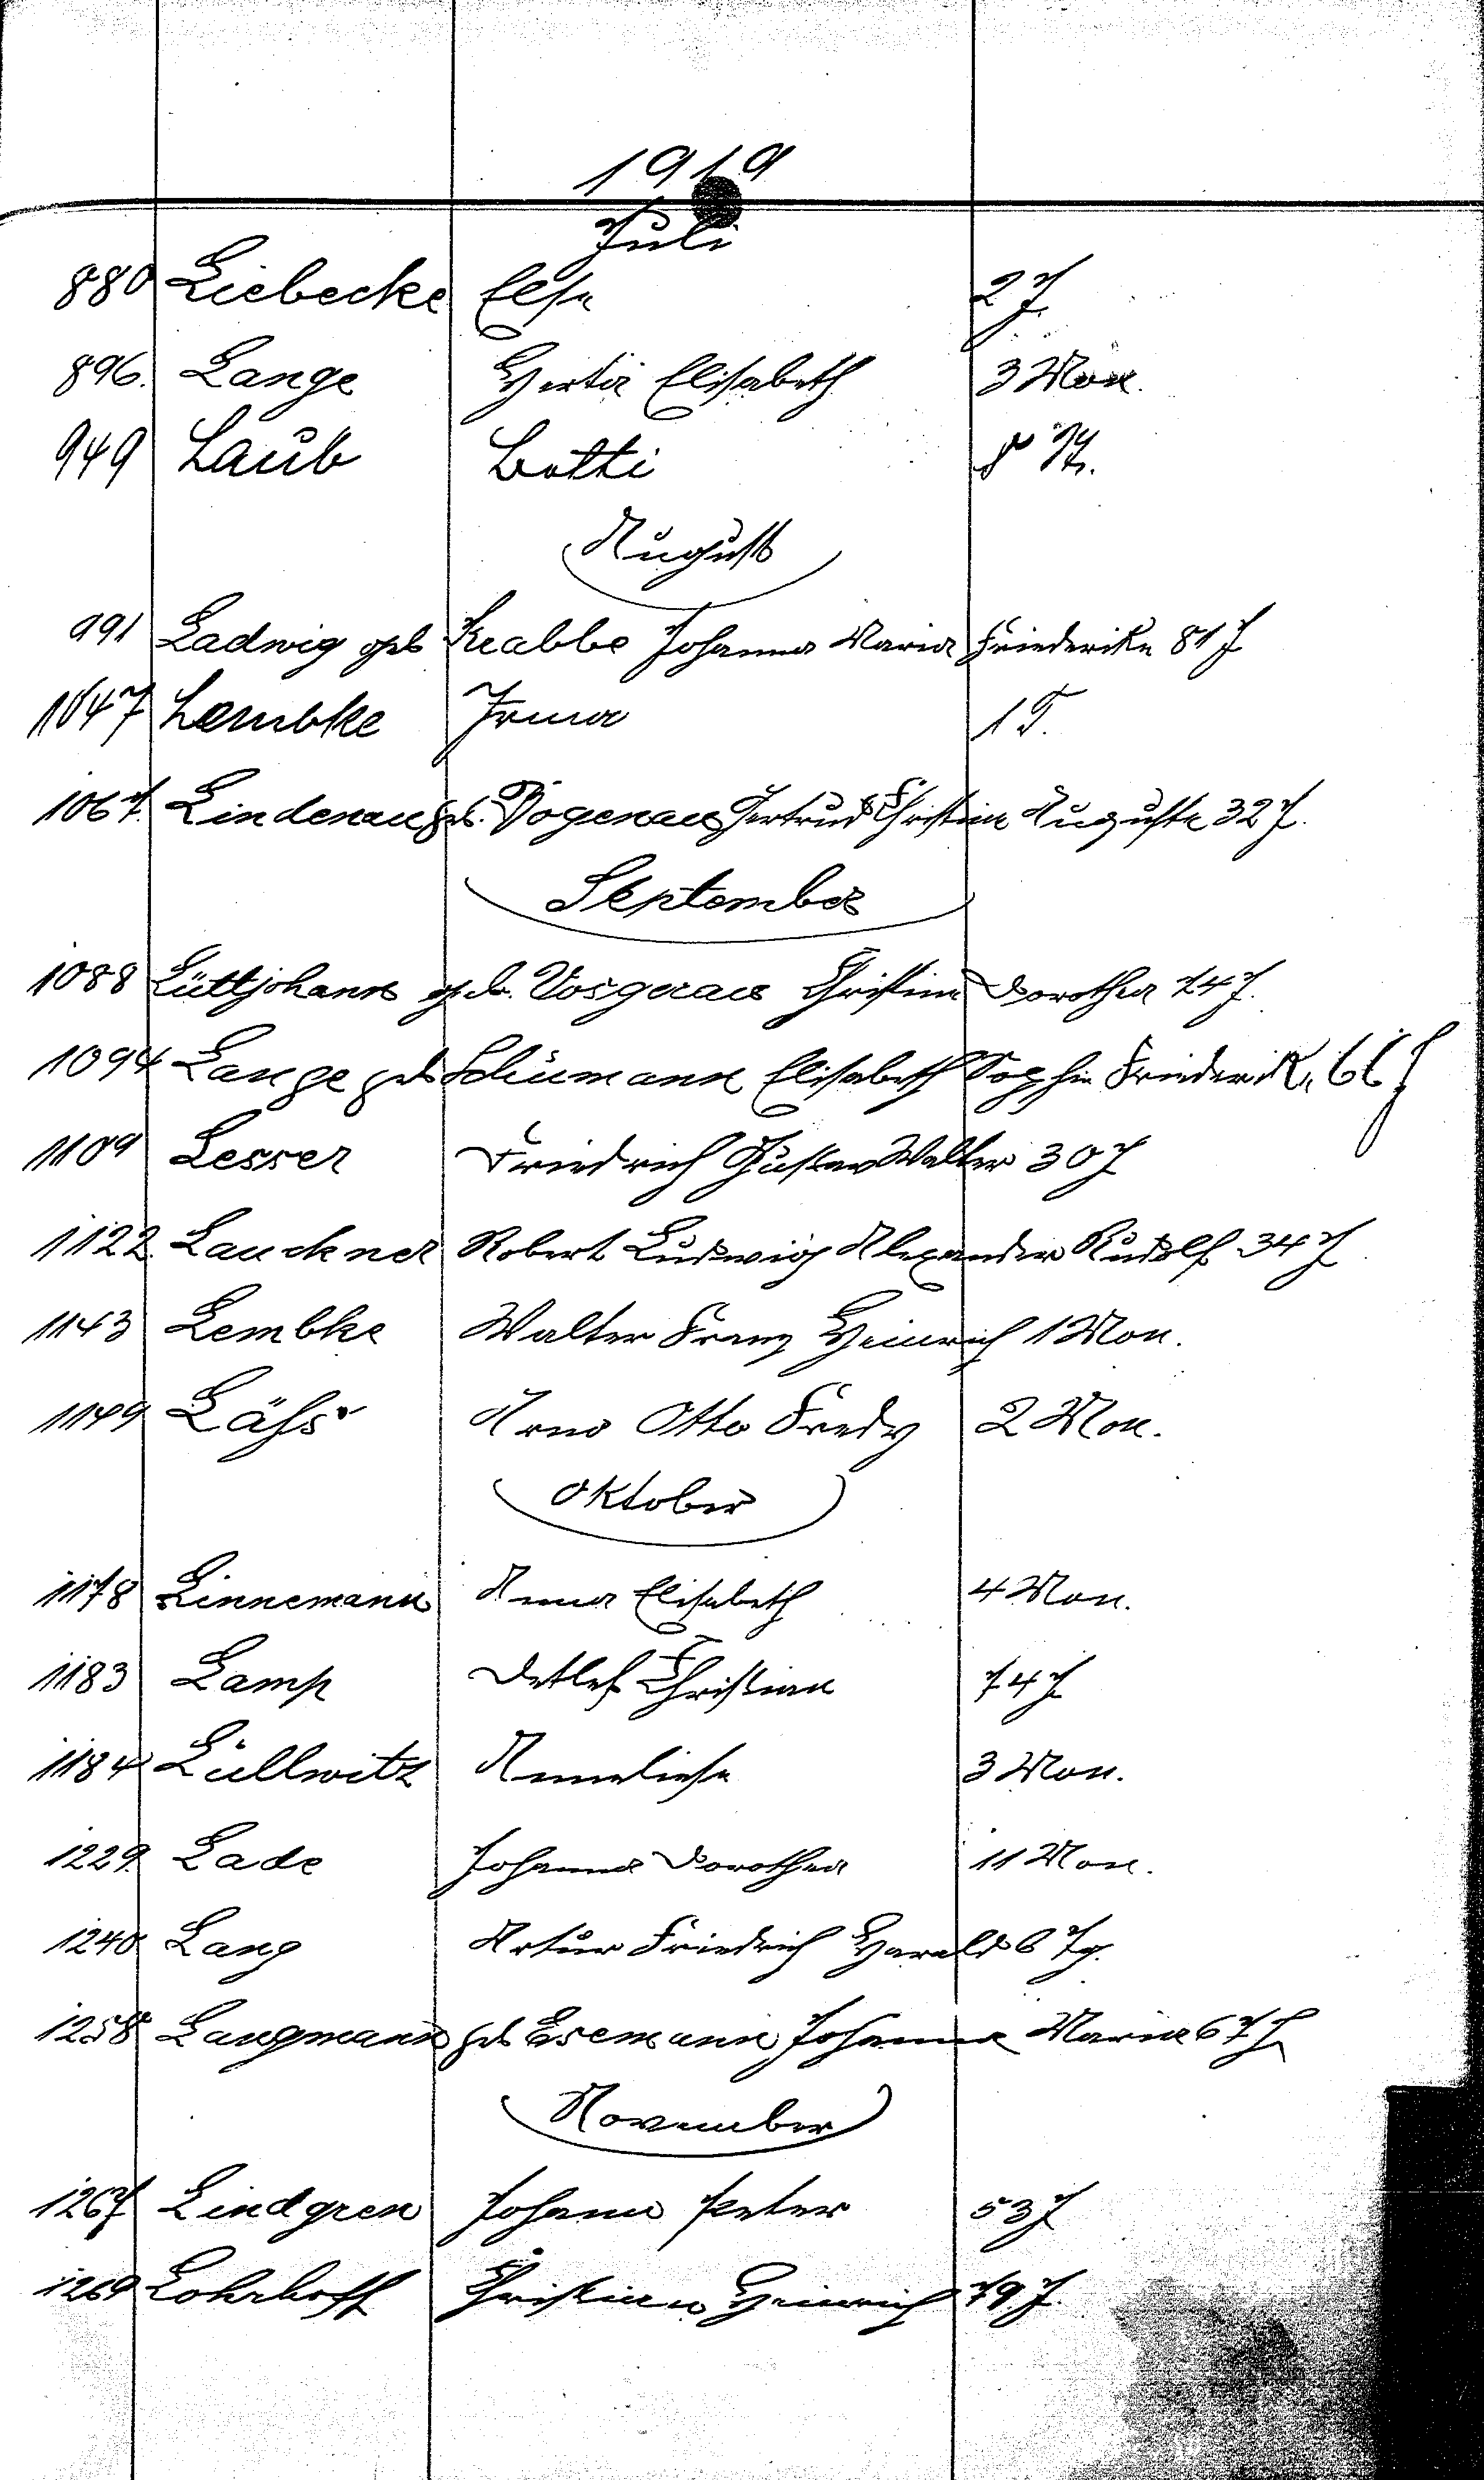 1919
Juli
880 Liebecke Elsa 2 J.
896. Lange Herta Elisabeth 3 Mon.
949 Laub Lotti
August
991 Ladwig geb Krabbe Johanna Maria Friederike 81 J
1047 Lembke Irma 1 T.
1067. Lindenau geb. Vogenau Gertrud Christine Auguste 32 J.
September
1088 Lüttjohann geb. Vosgerau Christine Dorothea 74 J.
1094 Lange geb Schümann Elisabeth Sophie Friederik. 66 J
1109 Lesser Friedrich Gustav Walter 30 J
1122 Lauckner Robert Ludwig Alexander Rudolf 34 J
1143 Lembke Walter Franz Heinrich 1 Mon.
1149 Läss Arno Otto Fredy 2 Mon.
Oktober
1178 Linnemann Anna Elisabeth 4 Mon.
1183 Lamp Detlef Christian 74 J
1184 Lüllwitz Anneliese 3 Mon.
1229. Lade Johanna Dorothea 11 Mon.
1240 Lang Artur Friedrich Harald 6 Tg.
1258 Langmann geb Esemann Johanna Maria 67 J
November
1267 Lindgren Johann Peter 53 J
1269 Lohrhoff Christian Heinrich 79 J.